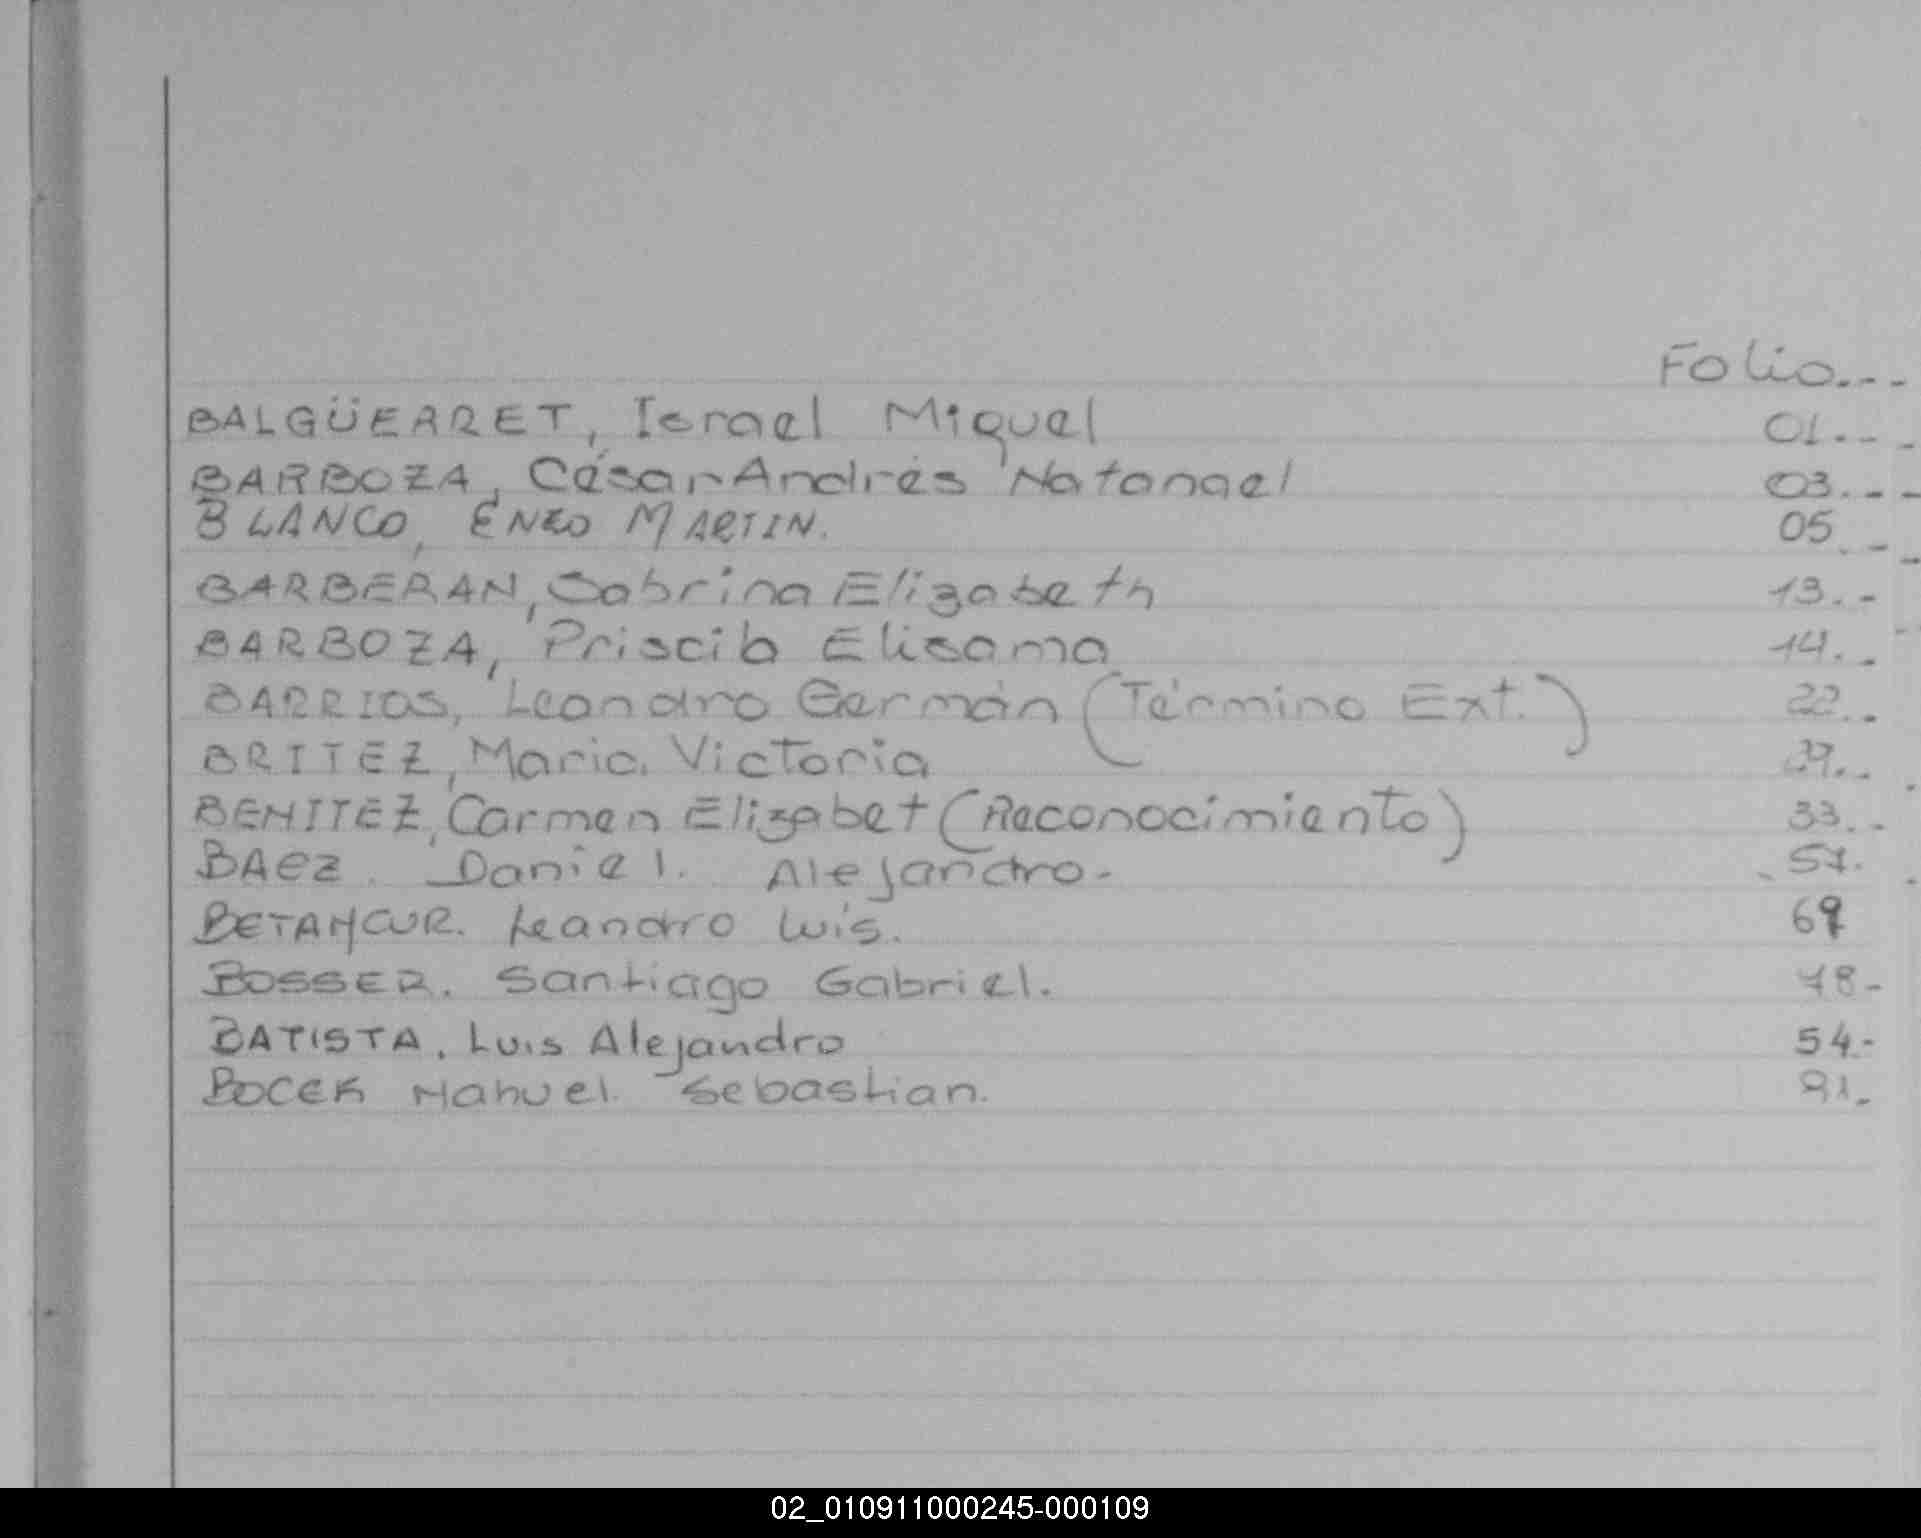 Folio...
BALGÜERRET, Israel Miguel 01...
BARBOZA, César Andrés Natanael 03...
BLANCO, ENZO MARTIN. 05...
BARBERAN, Sabrina Elizabeth 13..
BARBOZA, Priscila Elisama 14..
BARRIOS, Leandro Germán (Término Ext.) 22..
BRITEZ, Maria Victoria
BENITEZ, Carmen Elizabet (Reconocimiento) 33..
BAEZ. Daniel. Alejandro.-
BETANCUR. Leandro Luis.
BOSSER. Santiago Gabriel.
BATISTA. Luis Alejandro 54.-
BOCEK Manuel. Sebastian.
02_010911000245-000109